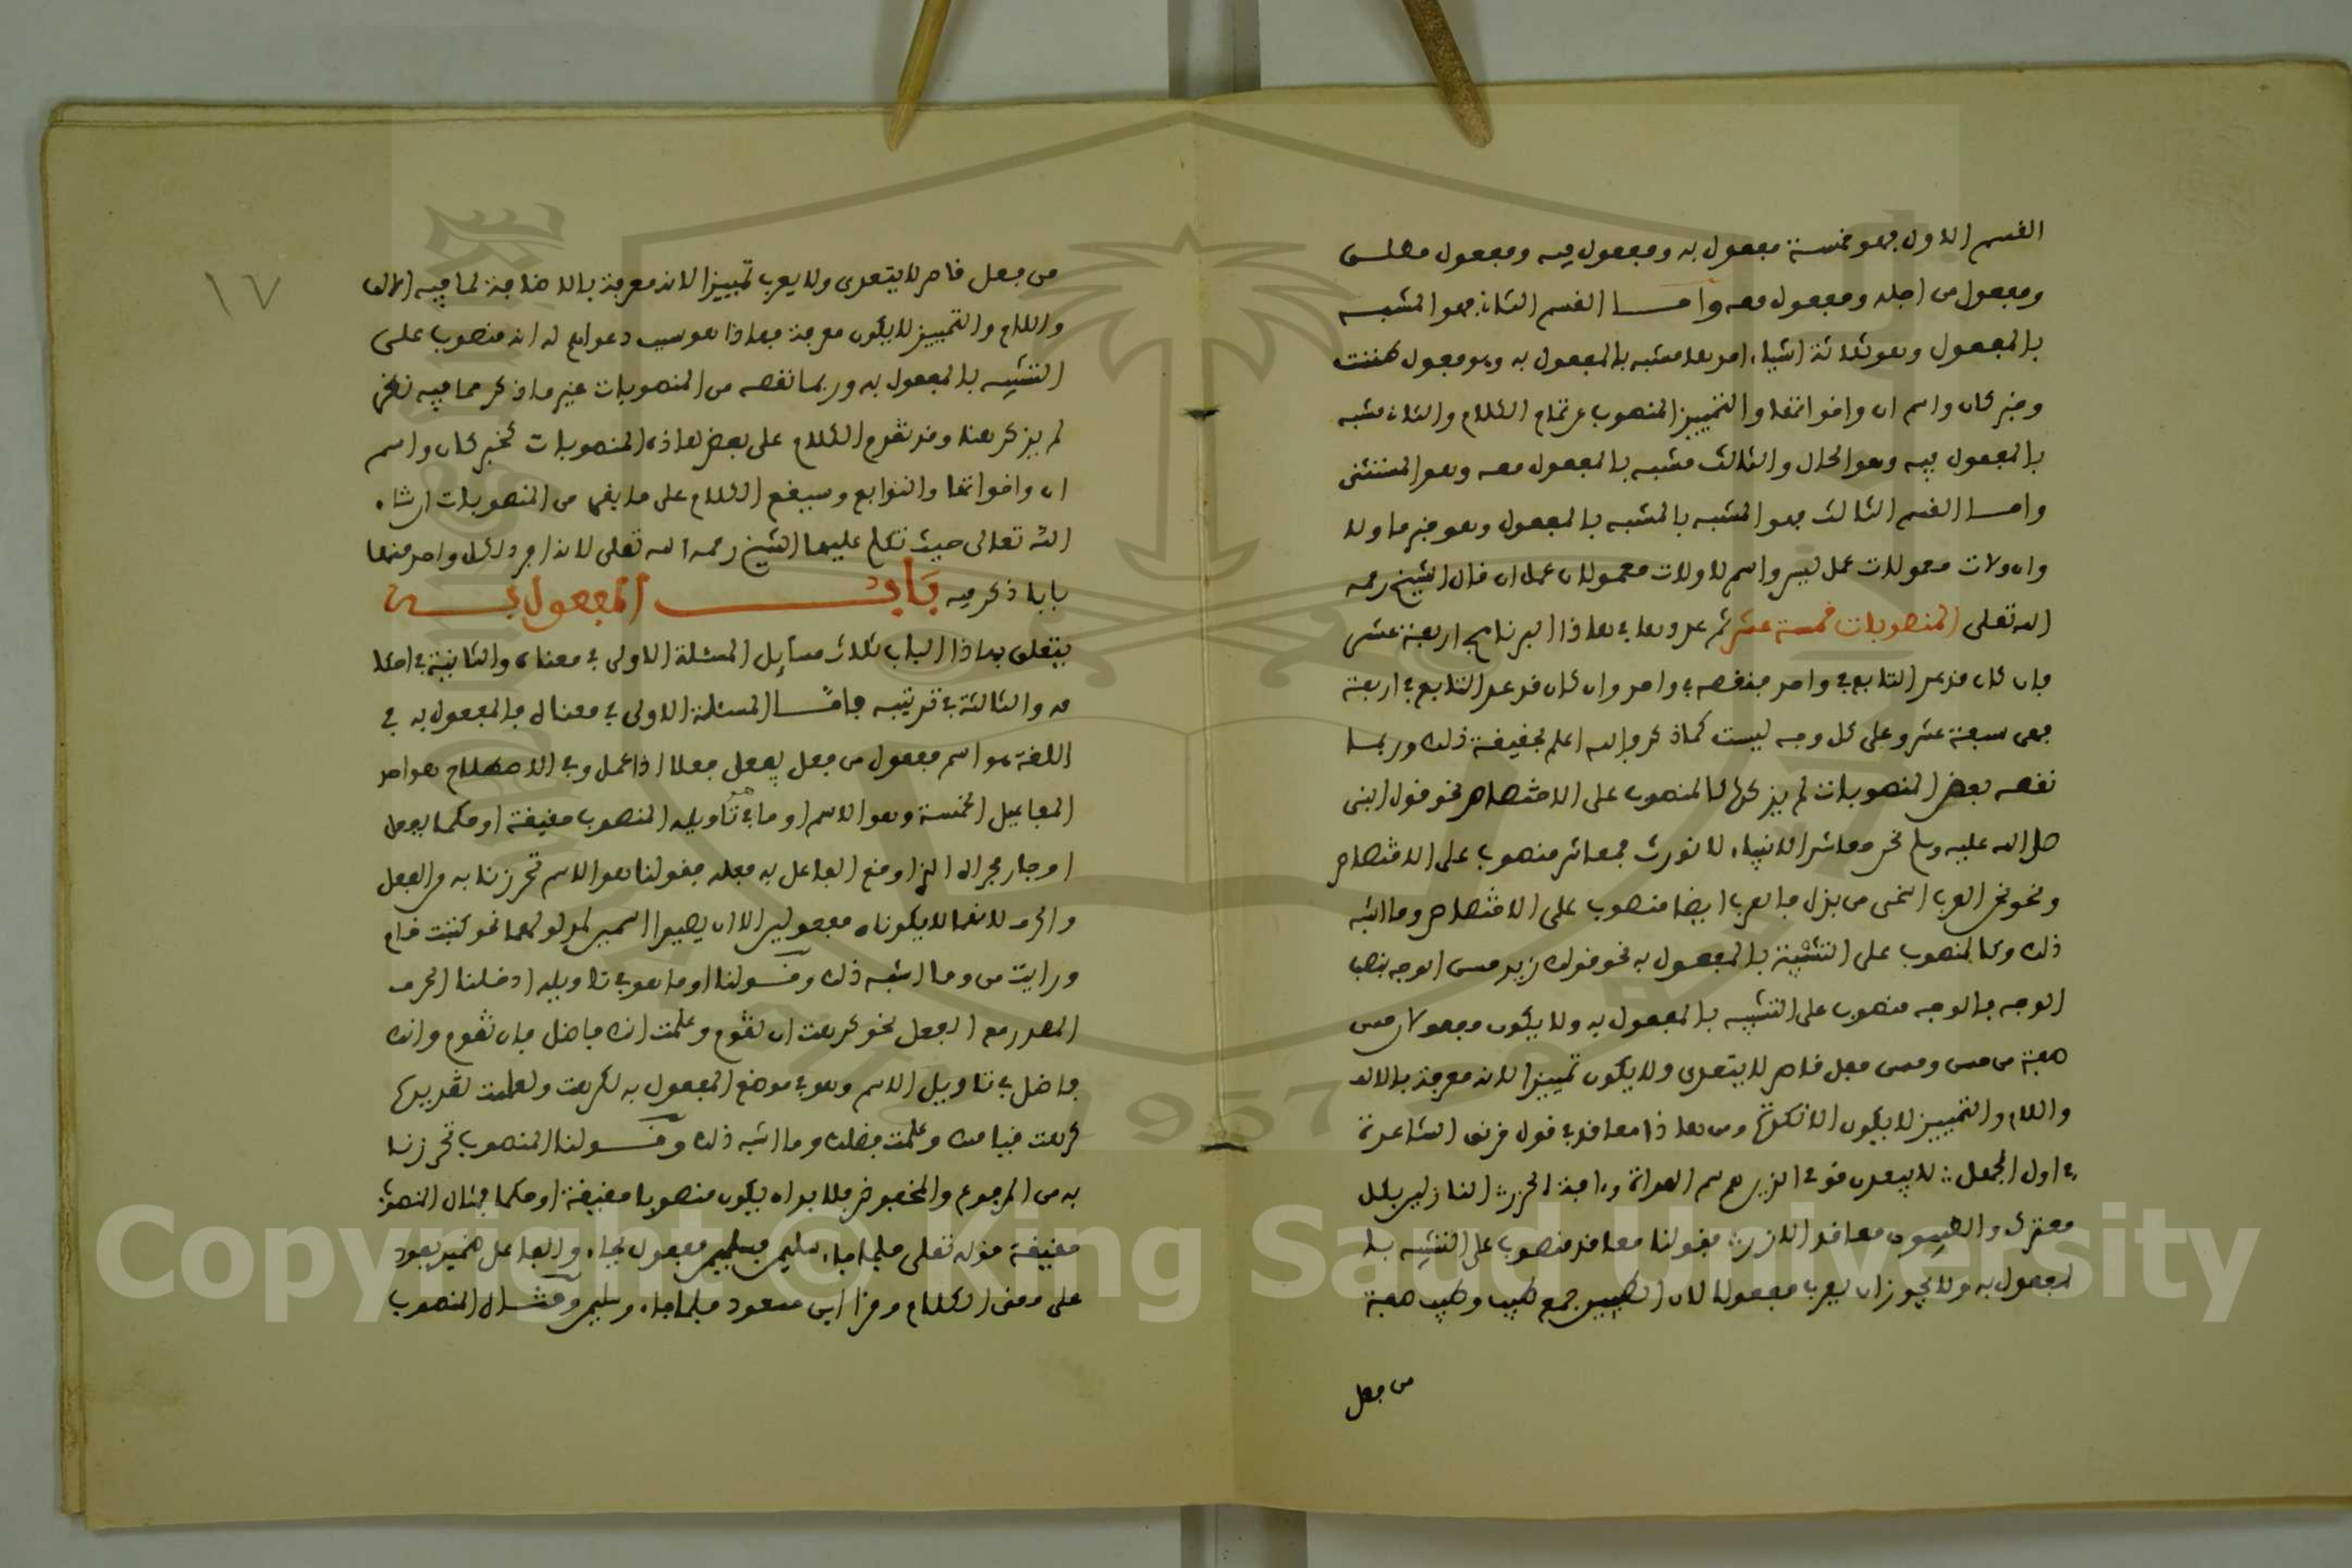 القسم الاول فهو خمسة مفعول به ومفعول فيه ومفعول مطلق
ومفعول من اجله ومفعول معه واما القسم الثاني فهو المشبه
بالمفعول وهو ثلاثة اشياء احدها مشبه بالمفعول به وهو مفعول ظننت
وخبر كان واسم ان واخواتها والتمييز المنصوب عن تمام الكلام والثاني مشبه
بالمفعول فيه وهو الحال والثالث مشبه بالمفعول معه وهو المستثنى
واما القسم الثالث فهو المشبه بالمشبه بالمفعول وهو خبر ما ولا
وان ولات معمولات عمل ليس واسم لا ولات معمولات عمل ان قال الشيخ رحمه
الله تعلى المنصوبات خمسة عشر ثم عدوها في هاذا البرنامج اربعة عشر
فان كان قد عد التابع في واحد فنقصه في واحد وان كان قد عد التابع في اربعة
فهى سبعة عشر وعلى كل وجه ليست كما ذكر والله اعلم بحقيقة ذلك وربما
نقصه بعض المنصوبات لم يذكرها كالمنصوب على الاختصاص نحو قول النبى
صلى الله عليه وسلم نحن معاشر الانبياء لا نورث فمعاشر منصوب على الاختصاص
ونحو نحن العرب اسخى من بذل فالعرب ايضا منصوب على الاختصاص وما اشبه
ذلك وكالمنصوب على التشبيه بالمفعول به نحو قولك زيد حسن الوجه بنصب
الوجه فالوجه منصوب على التشبيه بالمفعول به ولا يكون مفعولا لان حسن
صفة من حسن وحسن فعل قاصر لا يتعدى ولا يكون تمييزا لانه معرفة بالالف
واللام والتمييز لا يكون الا نكرة ومن هاذا معاقد في قول خرنق الشاعرة
في اول الجمل لا يبعدن قومي الذين هم سم العداة وءافة الجزر النازلين بكل
معترك والطيبون معاقد الازر فقولنا معاقد منصوب على التشبيه با
لمفعول به ولا يجوز ان يعرب مفعولا لان الطيبين جمع طيب وطيب صفة
من فعل
١٧
من فعل قاصر لا يتعدى ولا يعرب تمييزا لانه معرفة بالاضافة لما فيه الالف
واللام والتمييز لا يكون معرفة فهاذا هو سبب دعواهم له انه منصوب على
التشبيه بالمفعول به وربما نقصه من المنصوبات غير ما ذكر مما فيه نظر
لم يذكر هنا وقد تقدم الكلام على بعض هاذه المنصوبات كخبر كان واسم
ان واخواتها والتوابع وسيقع الكلام على ما بقى من المنصوبات ان شاء
الله تعالى حيث تكلم عليها الشيخ رحمه الله تعلى لانه افرد لكل واحد منها
بابا ذكر فيه باب المفعولين
يتعلق بهاذا الباب ثلاث مسايل المسئلة الاولى في معناه والثانية في احكا
مه والثالثة في ترتيبه فاما المسئلة الاولى في معناه فالمفعول به في
اللغة هو اسم مفعول من فعل يفعل فعلا اذا عمل وفي الاصطلاح هو احد
المفاعيل الخمسة وهو الاسم او ما في تاويله المنصوب حقيقة او حكما بفعل
او جار مجراه الذي اوقع الفاعل به فعله فقولنا هو الاسم تحرزنا به من الفعل
والحرف لانهما لا يكونان مفعولين الا ان يصيرا اسمين لمدلولهما نحو كتبت قام
ورايت من وما اشبه ذلك وقولنا او ما هو في تاويله ادخلنا الحرف
المصدر مع الفعل نحو كرهت ان تقوم وعلمت انك فاضل فان تقوم وانك
فاضل في تاويل الاسم وهو في موضع المفعول به لكرهت ولعلمت تقديرها
كرهت قيامك وعلمت فضلك وما اشبه ذلك وقولنا المنصوب تحرزنا
به من المرفوع والمخفوض فلا بد ان يكون منصوبا حقيقة او حكما فمثال المنصوب
حقيقة قوله تعلى فلما جاء سليمن فسليمن مفعول بجاء والفاعل ضمير يعود
على معنى الكلام وقرا ابن مسعود فلما جاءو سليمن ومثال المنصوب